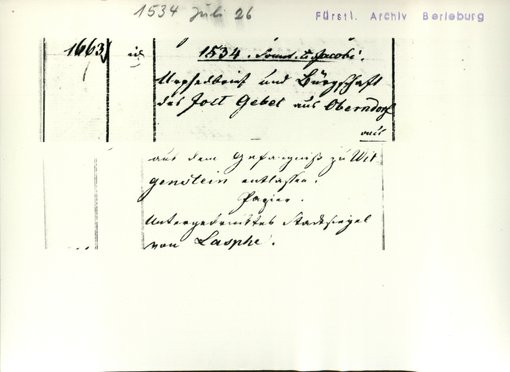 1534 Juli 26
Fürstl. Archiv Berleburg
1663
1534. Jacobi.
Urphedbrief und Bürgschaft
des Jost Gebel aus Oberndorf
aus
aus dem Gefängniß zu Wit
genstein entlassen.
Papier.
Untergedrucktes Stadtsiegel
von Lasphe.